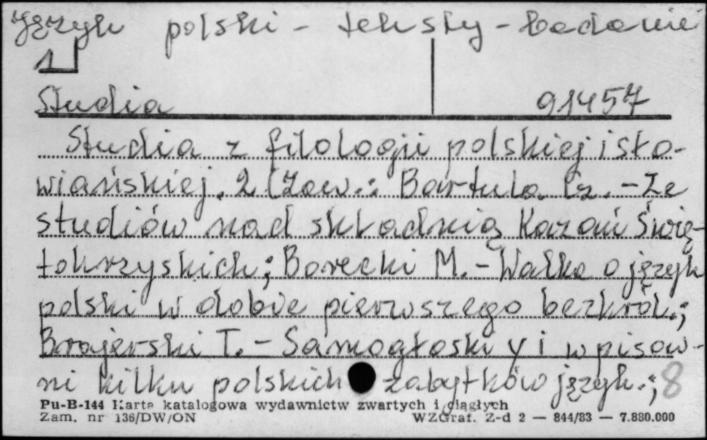 Język polski - teksty - badanie
1
Studia 91457
Studia z filologii polskiej i sło-
wiańskiej. 2 (Zaw.: Bartula Cz. - Ze
studiów nad składnią Kazań Świę-
tokrzyskich; Borecki M. - Walka o język
polski w dobie pierwszego bezkról.;
Brajerski T. - Samogłoski y i i w pisow-
ni kilku polskich zabytków język.; 8
Pu-B-144 Karta katalogowa wydawnictw zwartych i ciągłych
Zam. nr 136/DW/ON WZGraf. Z-d 2 — 844/83 — 7.880.000